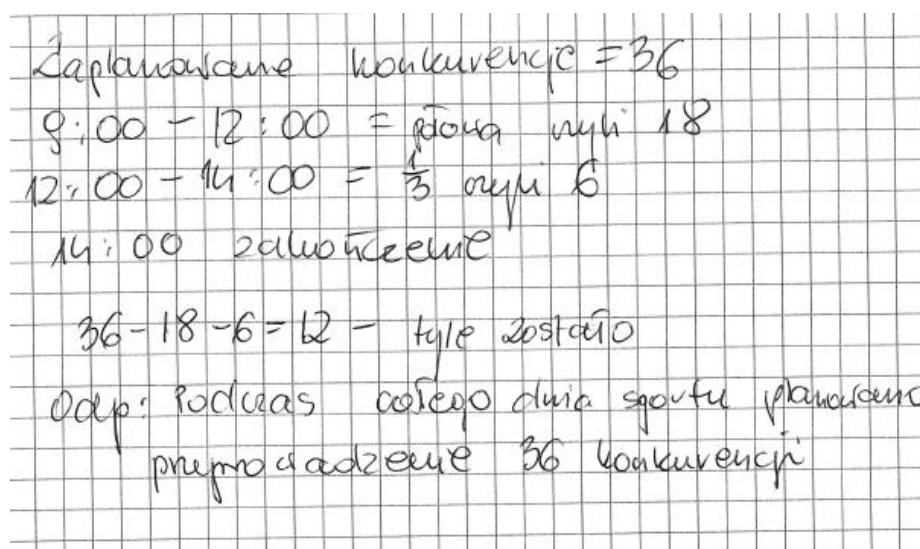 Zaplanowane konkurencje = 36
9:00 - 12:00 = połowa czyli 18
12:00 - 14:00 = 1/3 czyli 6
14:00 zakończenie
36 - 18 - 6 = 12 - tyle zostało
Odp: Podczas całego dnia sportu planowano
przeprowadzenie 36 konkurencji